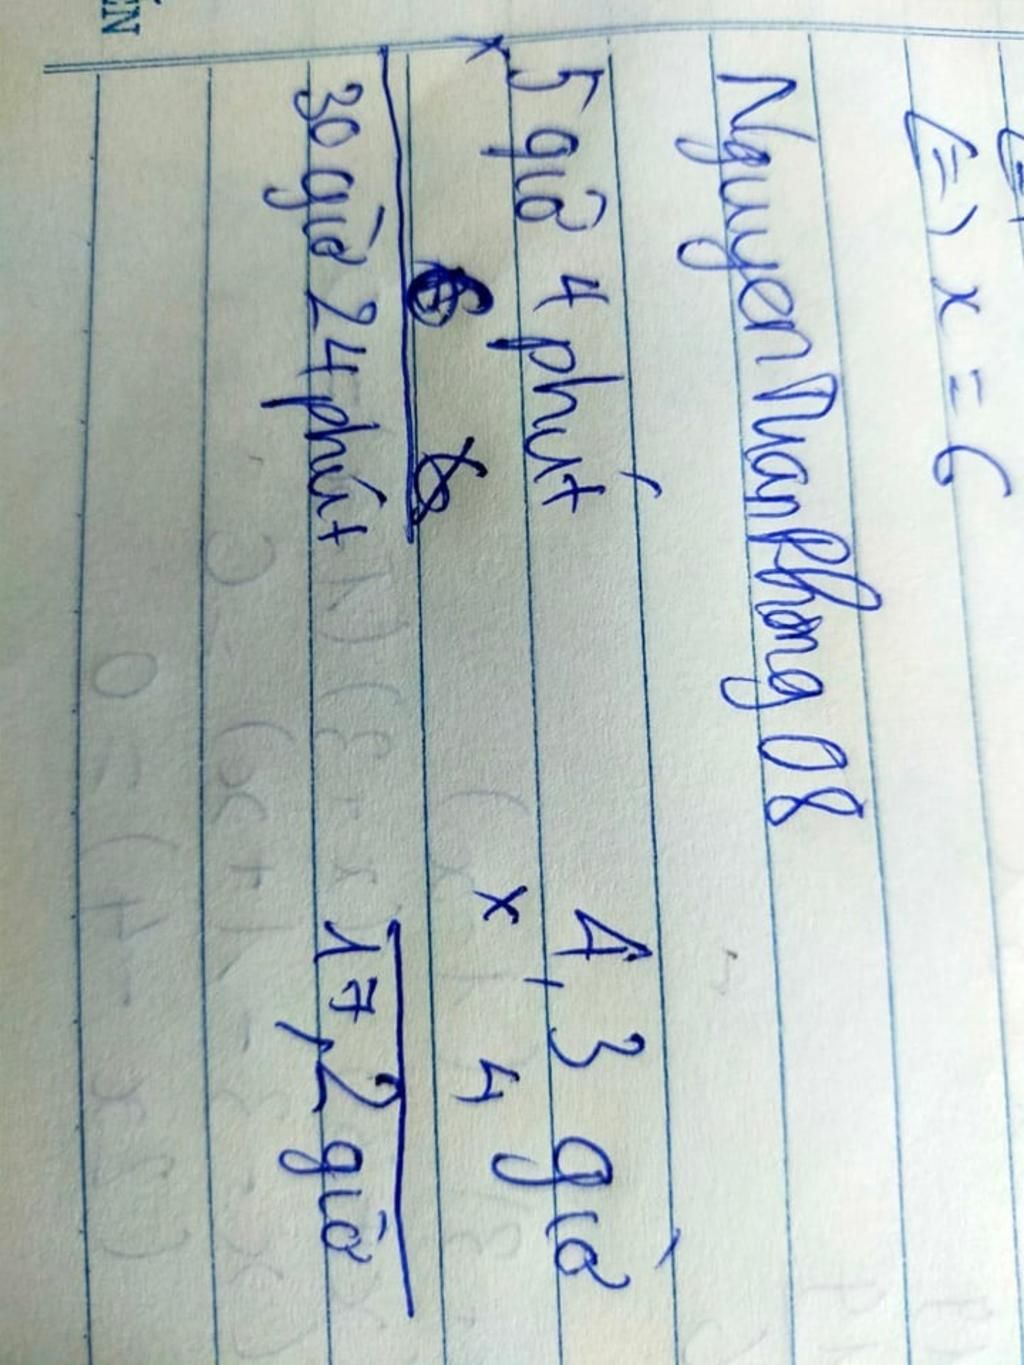 <=> x = 6
Nguyen Tuan Phong 08
x 5 giờ 4 phút
6
30 giờ 24 phút
4,3 giờ
x 4
17,2 giờ